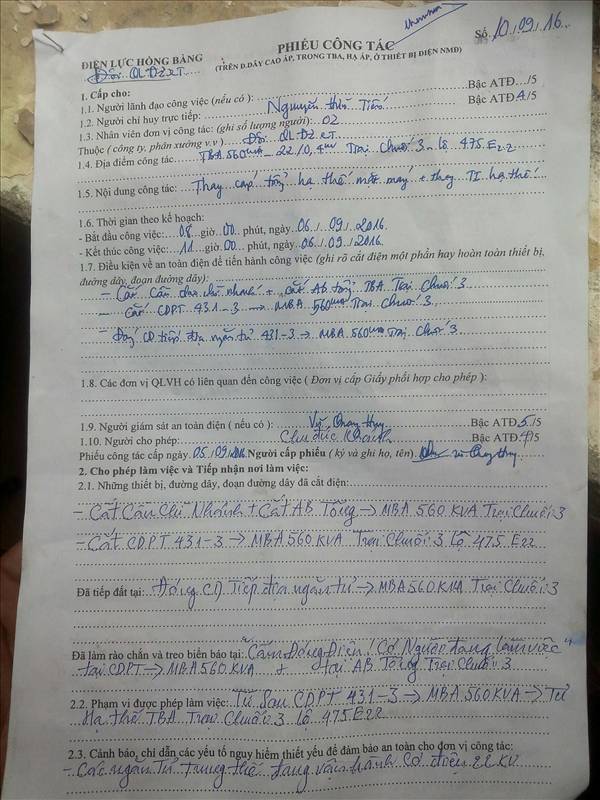 PHIẾU CÔNG TÁC
Số 10/09/16
ĐIỆN LỰC HỒNG BÀNG
(TRÊN Đ.DÂY CAO ÁP, TRONG TBA, HẠ ÁP, Ở THIẾT BỊ ĐIỆN NMĐ)
Đội QLĐZ&T
1. Cấp cho:
1.1. Người lãnh đạo công việc (nếu có): Bậc ATĐ.../5
1.2. Người chỉ huy trực tiếp: Nguyễn Tiến Bậc ATĐ 4/5
1.3. Nhân viên đơn vị công tác: (ghi số lượng người): 02
Thuộc (công ty, phân xưởng v.v) Đội QLĐZ&T
1.4. Địa điểm công tác TBA 560KVA - 22/0,4KV Trại Chuối 3 - lộ 475 E22
1.5. Nội dung công tác: Thay cáp tổng hạ thế máy + thay TI hạ thế
1.6. Thời gian theo kế hoạch:
- Bắt đầu công việc: 08 giờ 00 phút, ngày 06/09/2016
- Kết thúc công việc: 11 giờ 00 phút, ngày 06/09/2016
1.7. Điều kiện về an toàn điện để tiến hành công việc (ghi rõ cắt điện một phần hay hoàn toàn thiết bị,
đường dây, đoạn đường dây):
- Cắt Cầu chì nhánh + cắt AB tổng TBA Trại Chuối 3
- Cắt CDPT 431-3 → MBA 560KVA Trại Chuối 3
- Đóng CD tiếp địa ngăn tủ 431-3 → MBA 560KVA Trại Chuối 3
1.8. Các đơn vị QLVH có liên quan đến công việc ( Đơn vị cấp Giấy phối hợp cho phép ):
1.9. Người giám sát an toàn điện ( nếu có ): Vũ Quang Huy Bậc ATĐ 5/5
1.10. Người cho phép: Chu Đức Khánh Bậc ATĐ 4/5
Phiếu công tác cấp ngày 05/09/2016 Người cấp phiếu ( ký và ghi họ, tên) Vũ Quang Huy
2. Cho phép làm việc và Tiếp nhận nơi làm việc:
2.1. Những thiết bị, đường dây, đoạn đường dây đã cắt điện:
- Cắt Cầu Chì Nhánh + Cắt AB Tổng → MBA 560 KVA Trại Chuối 3
- Cắt CDPT 431-3 → MBA 560 KVA Trại Chuối 3 Lộ 475 E22
Đã tiếp đất tại: Đóng CD Tiếp địa ngăn tủ → MBA 560 KVA Trại Chuối 3
Đã làm rào chắn và treo biển báo tại: "Cấm Đóng Điện! Có Người đang làm việc"
tại CDPT → MBA 560 KVA + tại AB Tổng Trại Chuối 3
2.2. Phạm vi được phép làm việc: Từ Sau CDPT 431-3 → MBA 560 KVA → Tủ
Hạ thế TBA Trại Chuối 3 lộ 475 E22
2.3. Cảnh báo, chỉ dẫn các yếu tố nguy hiểm thiết yếu để đảm bảo an toàn cho đơn vị công tác:
- Các ngăn Tủ Trung thế đang vận hành Có điện 22 KV